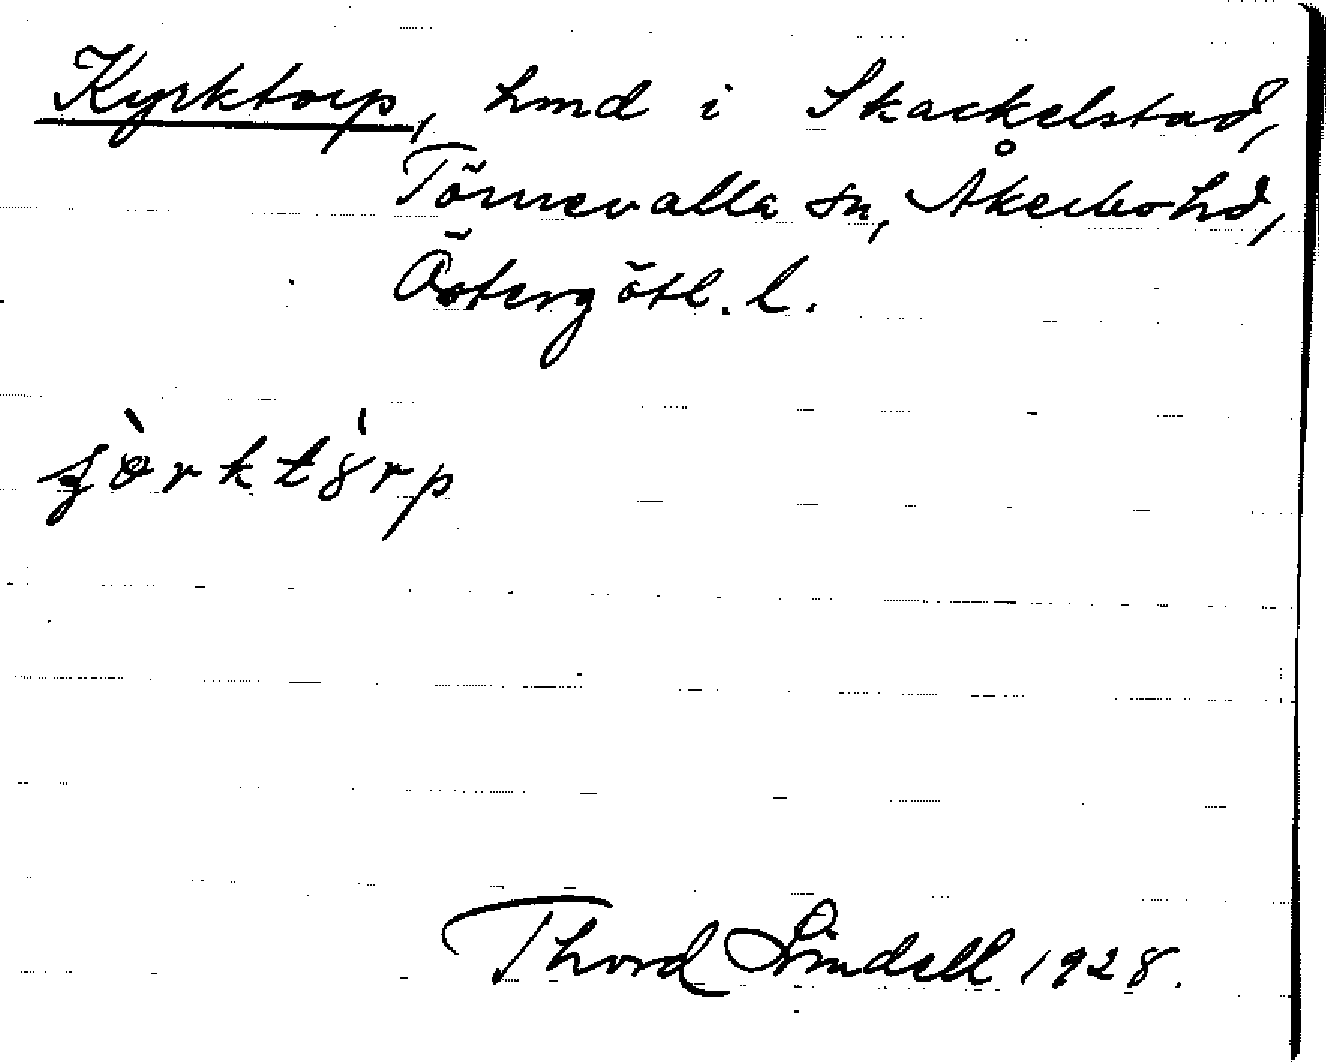 Kyrktorp, hmd i Skackelstad,
Törnevalla sn, Åkerbo hd,
Östergötl. l.
Thord Lindell 1928.